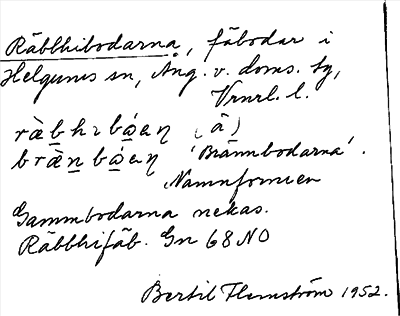 Räbbhibodarna, fäbodar i
Helgums sn, Ång. v. doms. tg,
Vrnrl. l.
ràbhɩbǿaɳ (â)
brànbǿaɳ 'Brännbodarna'.
Namnformen
Gammbodarna nekas.
Räbbhifäb. Gn 68 NO
Bertil Flemström 1952.